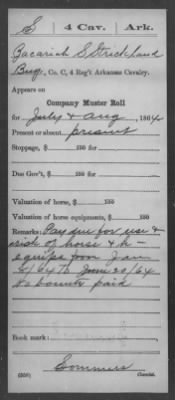 S | 4 Cav. | Ark.
Zacariah S Strickland
Bug., Co. C, 4 Reg't Arkansas Cavalry.
Appears on
Company Muster Roll
for July & Aug, 1864
Present or absent present
Stoppage, $ 100 for
Due Gov't, $ 100 for
Valuation of horse, $ 100
Valuation of horse equipments, $ 100
Remarks: Pay due for use &
risk of horse & h-
equips from Jan
64 to June 20/64
No bounty paid
Book mark:
Sommers
(358) Copyist.